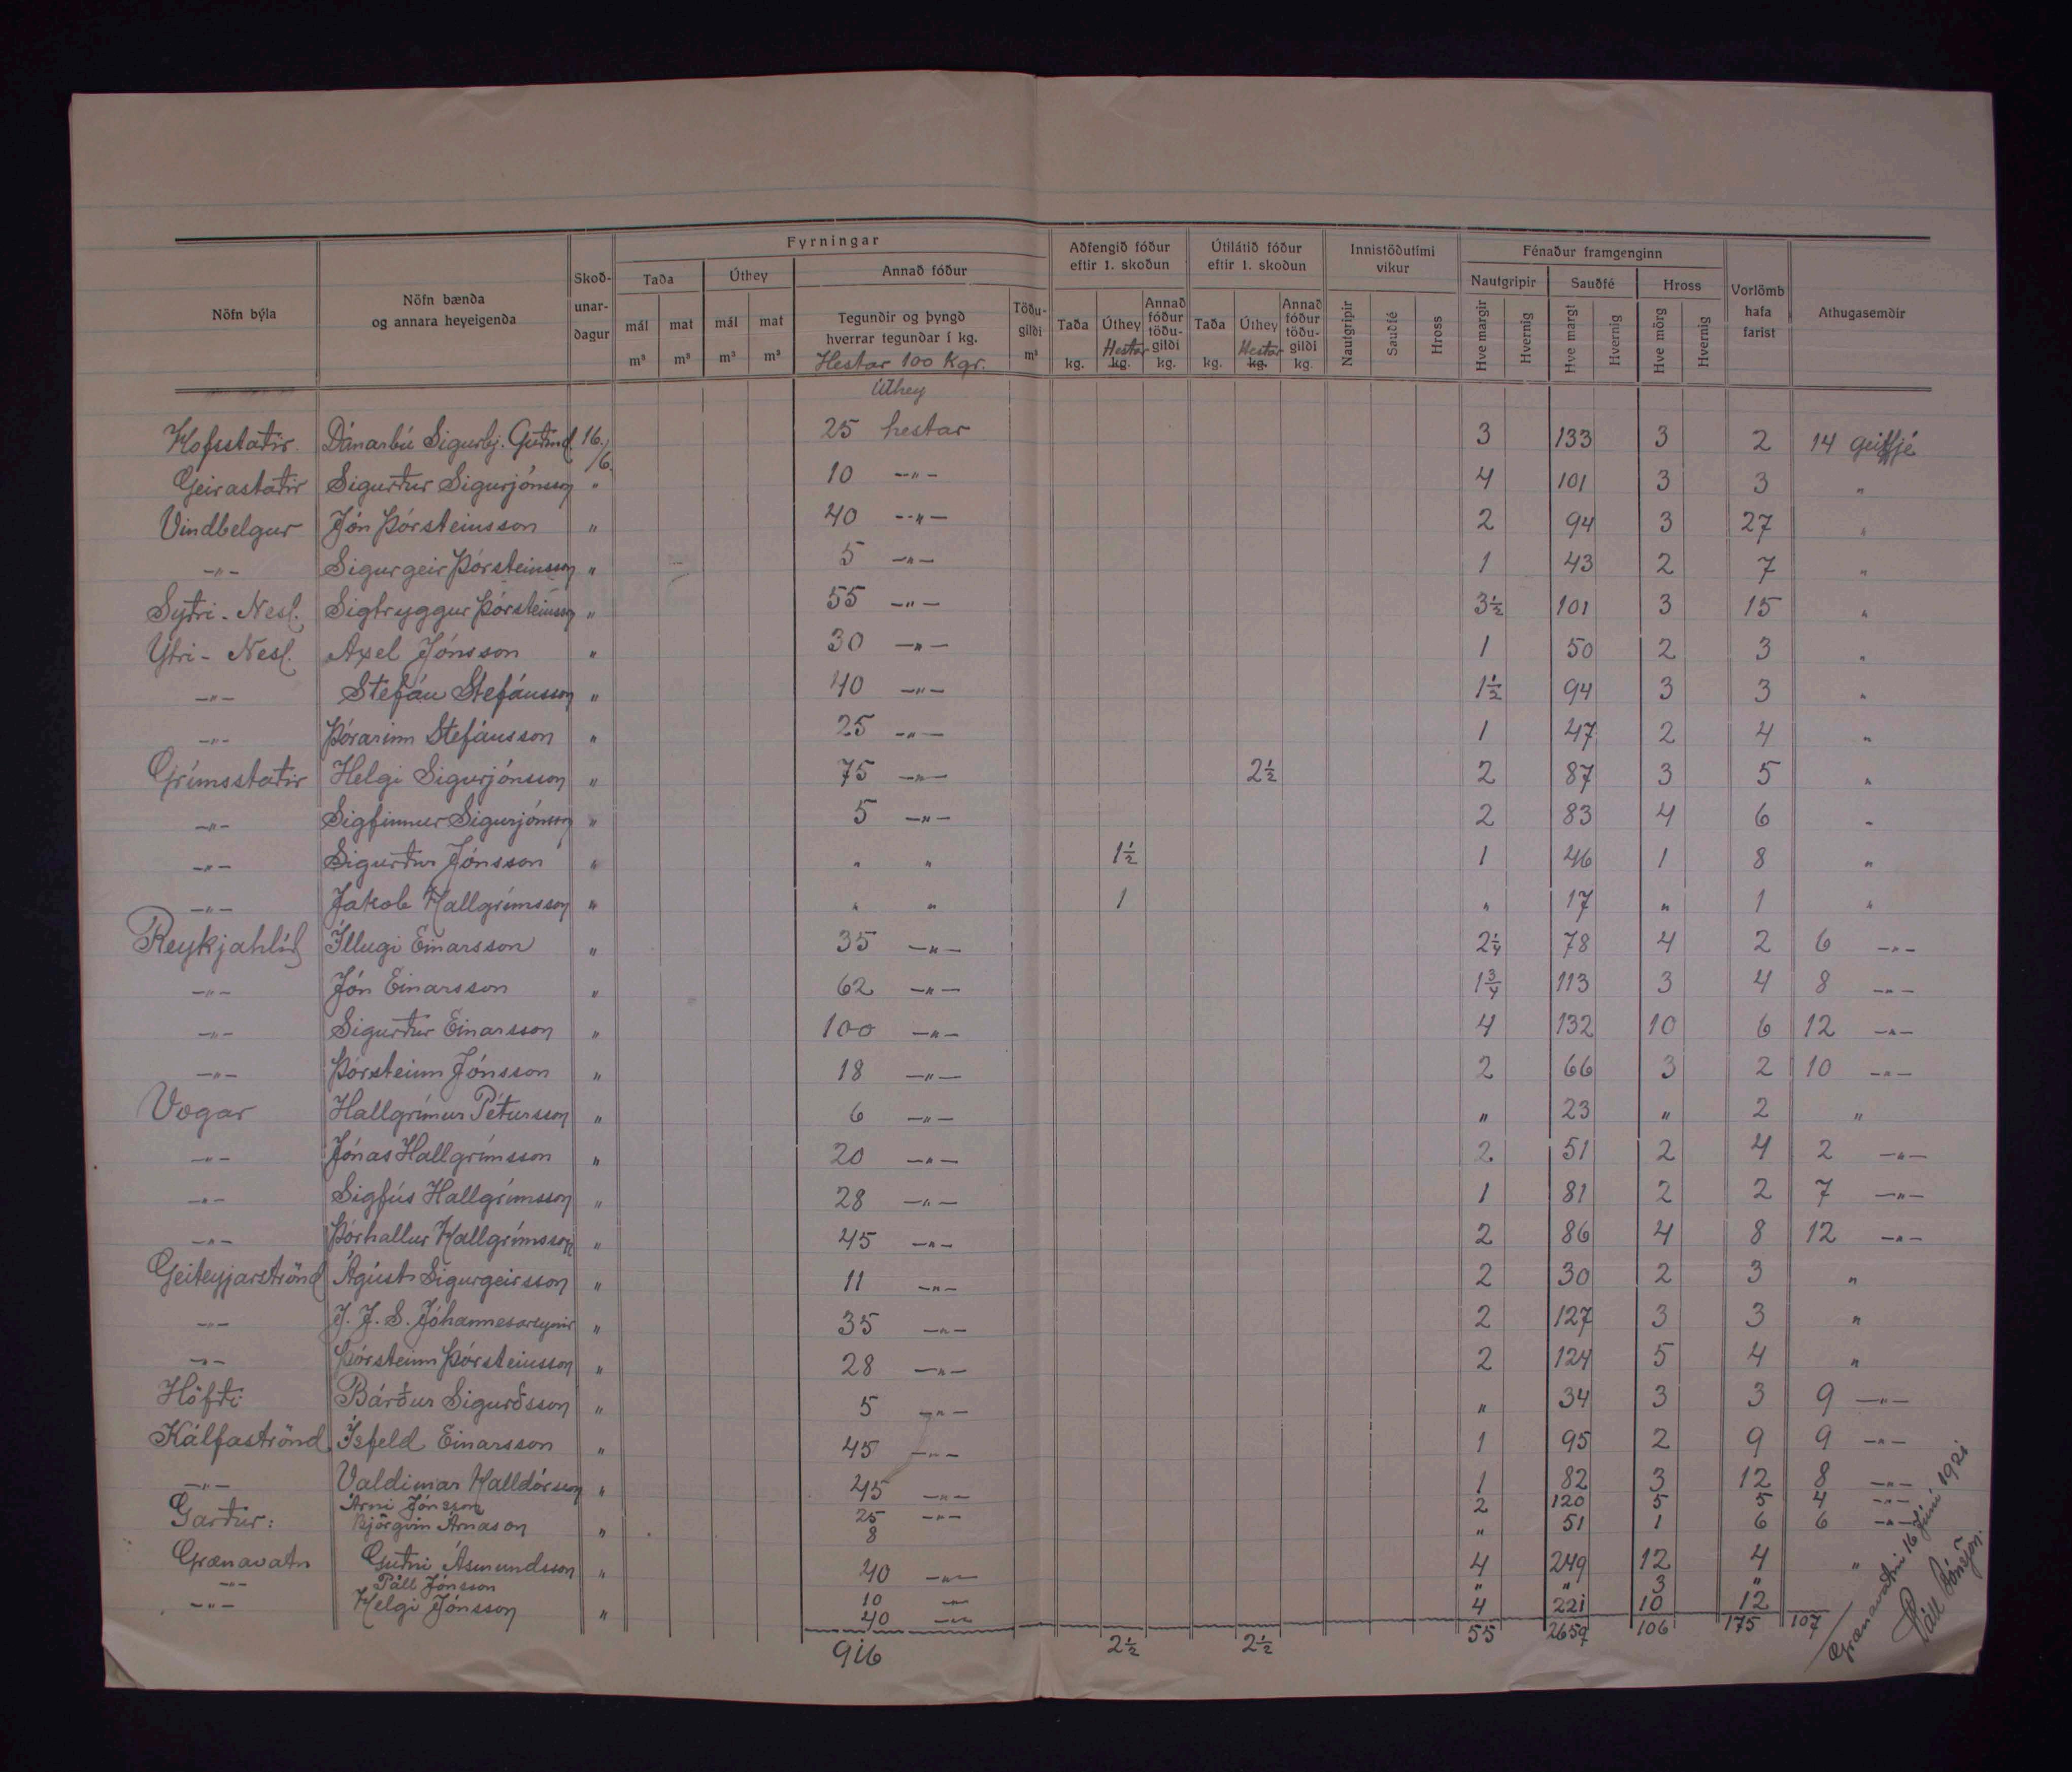 Fyrningar
Aðfengið fóður eftir 1. skoðun
Útilátið fóður eftir 1. skoðun
Innistöðutími vikur
Fénaður framgenginn
Nöfn býla
Nöfn bænda og annara heyeigenda
Skoð-unar-dagur
Taða
Úthey
Annað fóður
Nautgripir
Sauðfé
Hross
Vorlömb hafa farist
Athugasemdir
mál m³ mat m³ mál m³ mat m³
Tegundir og þyngd hverrar tegundar í kg.
Hestar 100 Kgr.
Töðu-gildi m³
Taða kg. Úthey Hestar kg. Annað fóður töðu-gildi kg.
Taða kg. Úthey Hestar kg. Annað fóður töðu-gildi kg.
Nautgripir Sauðfé Hross
Hve margir Hvernig Hve margt Hvernig Hve mörg Hvernig
Úthey
Hofsstaðir. Dánarbú Sigurbj. Guðmd. 16./6. 25 hestar 3 133 3 2 14 geitfjé
Geirastaðir Sigurður Sigurjónsson " 10 -"- 4 101 3 3 "
Vindbelgur Jón Þórsteinsson " 40 -"- 2 94 3 27 "
-"- Sigurgeir Þórsteinsson " 5 -"- 1 43 2 7 "
Syðri-Nesl. Sigtryggur Þórsteinsson " 55 -"- 3½ 101 3 15 "
Ytri-Nesl. Axel Jónsson " 30 -"- 1 50 2 3 "
-"- Stefán Stefánsson " 40 -"- 1½ 94 3 3 "
-"- Þórarinn Stefánsson " 25 -"- 1 47 2 4 "
Grímsstaðir Helgi Sigurjónsson " 75 -"- 2½ 2 87 3 5 "
-"- Sigfinnur Sigurjónsson " 5 -"- 2 83 4 6 "
-"- Sigurður Jónsson " " " 1½ 1 46 1 8 "
-"- Jakob Hallgrímsson " " " 1 " 17 " 1 "
Reykjahlíð Illugi Einarsson " 35 -"- 2¼ 78 4 2 6 -"-
-"- Jón Einarsson " 62 -"- 1¾ 113 3 4 8 -"-
-"- Sigurður Einarsson " 100 -"- 4 132 10 6 12 -"-
-"- Þórsteinn Jónsson " 18 -"- 2 66 3 2 10 -"-
Vogar Hallgrímur Pétursson " 6 -"- " 23 " 2 "
-"- Jónas Hallgrímsson " 20 -"- 2 51 2 4 2 -"-
-"- Sigfús Hallgrímsson " 28 -"- 1 81 2 2 7 -"-
-"- Þórhallur Hallgrímsson " 45 -"- 2 86 4 8 12 -"-
Geiteyjarströnd Ágúst Sigurgeirsson " 11 -"- 2 30 2 3 "
-"- J. J. S. Jóhannessynir " 35 -"- 2 127 3 3 "
-"- Þórsteinn Þórsteinsson " 28 -"- 2 124 5 4 "
Höfði Bárður Sigurðsson " 5 -"- " 34 3 3 9 -"-
Kálfaströnd Ísfeld Einarsson " 45 -"- 1 95 2 9 9 -"-
-"- Valdimar Halldórsson " 45 -"- 1 82 3 12 8 -"-
Árni Jónsson 25 -"- 2 120 5 5 4 -"-
Garður: Björgvin Árnason " 8 " 51 1 6 6 -"-
Grænavatn Guðni Ásmundsson " 40 -"- 4 249 12 4 "
-"- Páll Jónsson 10 -"- " " 3 "
-"- Helgi Jónsson " 40 -"- 4 221 10 12
916 2½ 2½ 55 2659 106 175 107
Grænavatni 16 Júní 1921
Páll Jónsson.